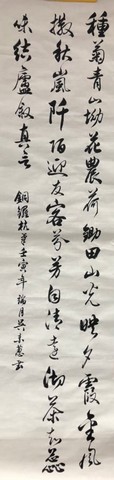 種菊青山坳花農荷鋤田山光映夕霞金風
撒秋嵐阡陌迎友客芬芳自清遠沏茶知蕊
味結廬敘真言
銅鑼杜華壬寅年端月吳東慧書